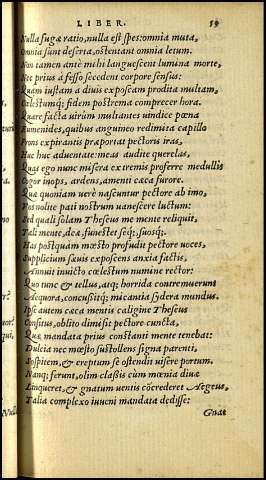 LIBER. 59
Nulla fugæ ratio, nulla est spes: omnia muta,
Omnia sunt deserta, ostentant omnia letum.
Non tamen antè mihi languescent lumina morte,
Nec prius à fesso secedent corpore sensus:
Quàm iustam a diuis exposcam prodita multam,
Cælestumq; fidem postrema comprecer hora.
Quare facta uirûm multantes uindice pœna
Eumenides, quibus anguineo redimita capillo
Frons expirantis præportat pectoris iras,
Huc huc aduentate: meas audite querelas,
Quas ego nunc misera extremis proferre medullis
Cogor inops, ardens, amenti cæca furore.
Quæ quoniam uerè nascuntur pectore ab imo,
Vos nolite pati nostrum uanescere luctum:
Sed quali solam Theseus me mente reliquit,
Tali mente, deæ, funestet seq;, suosq;.
Has postquam mœsto profudit pectore uoces,
Supplicium sæuis exposcens anxia factis,
Annuit inuicto cœlestum numine rector:
Quo tunc & tellus, atq; horrida contremuerunt
Aequora, concussitq; micantia sydera mundus.
Ipse autem cæca mentis caligine Theseus
Consitus, oblito dimisit pectore cuncta,
Quæ mandata prius constanti mente tenebat:
Dulcia nec mœsto sustollens signa parenti,
Sospitem, & ereptum se ostendit uisere portum.
Nanq; ferunt, olim classis cùm mœnia diuæ
Linqueret, & gnatum uentis cōcrederet Aegeus,
Talia complexo iuueni mandata dedisse:
Gnat